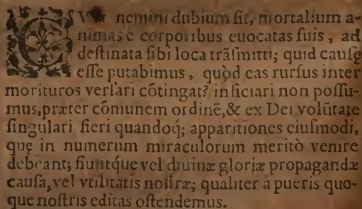 CVM nemini dubium sit, mortalium a-
nimas è corporibus euocatas suis, ad
destinata sibi loca trãsmitti; quid causę
esse putabimus, quòd eas rursus inter
morituros versari cõtingat? inficiari non possu-
mus, præter cõmunem ordinẽ, & ex Dei volũtate
singulari fieri quandoq; apparitiones eiusmodi,
quę in numerum miraculorum meritò venire
debeant; fiuntq́ue vel diuinæ gloriæ propagandæ
causa, vel vtilitatis nostræ; qualiter à pueris quo-
que nostris editas ostendemus.